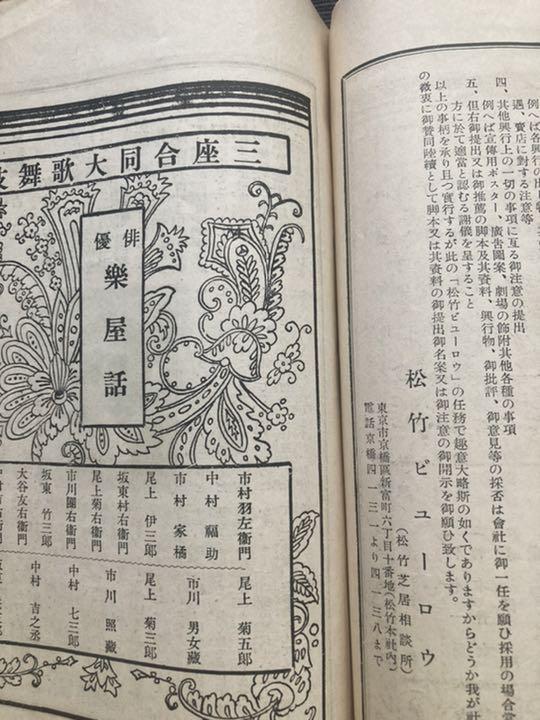 例へば各興行の出し物
遇、賣店に對する注意等
四、其他興行上の一切の事項に亙る御注意の提出
例へば宣傳用ポスター、廣告圖案、劇場の飾附其他各種の事項
五、但右御提出又は御推薦の脚本及其資料、興行物、御批評、御意見等の採否は會社に御一任を願ひ採用の場合當
方に於て適當と認むる謝儀を呈すること
以上の事柄を承り且つ實行するが此の「松竹ビューロウ」の任務で趣意大略斯の如くでありますからどうか我が社
の微衷に御賛同陸續として脚本又は其資料の御提出御名案又は御注意の御開示を御願ひ致します。
松竹ビューロウ
(松竹芝居相談所)
東京市京橋區新富町六丁目十番地(松竹本社內)
電話京橋四一三一より四一三八まで
三座合同大歌舞伎
俳優
樂屋話
市村羽左衞門
中村福助
市村家橘
尾上伊三郎
坂東村右衞門
尾上菊右衞門
市川團右衞門
坂東竹三郎
大谷友右衞門
尾上菊五郎
市川男女藏
尾上菊三郎
市川照藏
中村七三郎
中村吉之丞